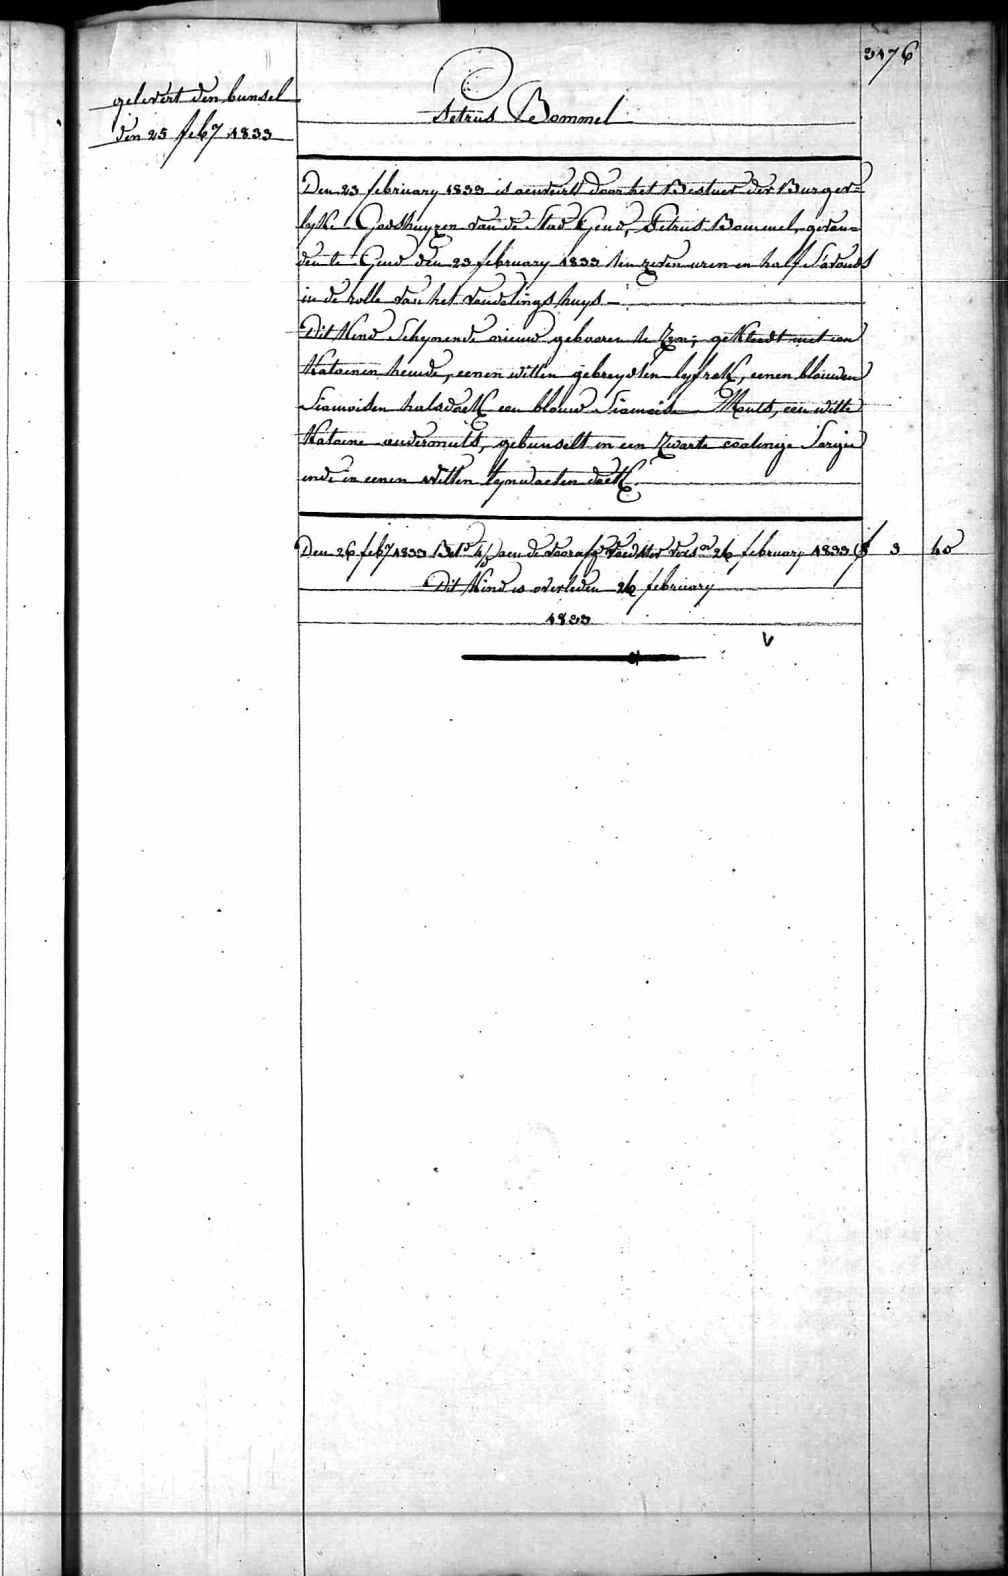 3176
gelevert den bunsel
den 25 feb.y 1833
Petrus Bommel
Den 23 february 1833 is aenveert door het Bestuer der Burger=
lyke Godshuyzen van de Stad Gend, Petrus Bommel, gevon=
den te Gend den 23 february 1833 ten zeven uren en half S'avonds
in de rolle van het vondelings huys –
Dit Kind Schynende nieuw gebooren te Zyn; gekleedt met een
Katoenen hemde, eenen witten gebreydden lyfrok, eenen blauwen
Siamoisen halsdoek een blauw Siamoise Muts, een witte
Katoene ondermuts, gebunselt in een Zwarte Sargie
ende in eenen witten lynwaeten doek.
Den 26 feb.y 1833 aen de 26 february 1833 f 3 60
Dit Kind is overleden 26 february
1833